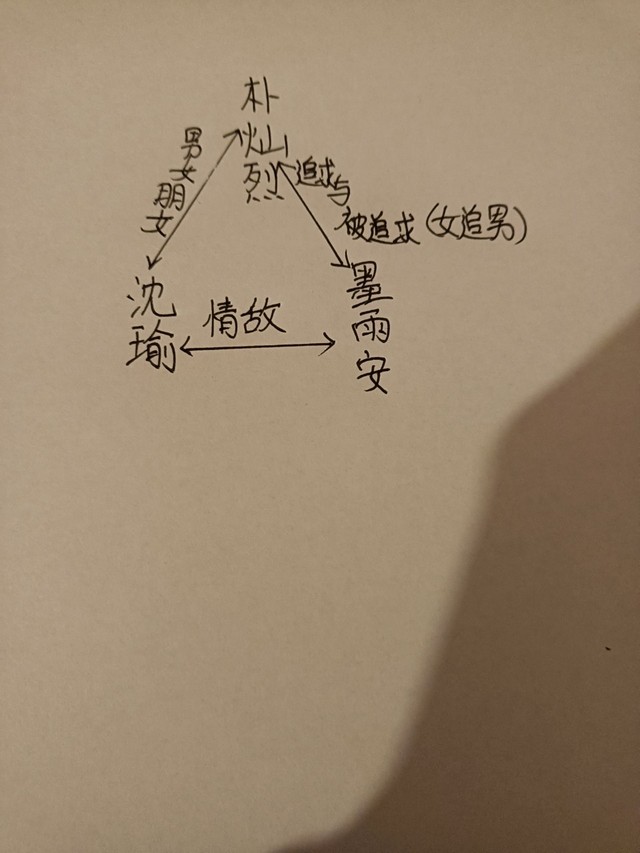 朴灿烈
男女朋女
追求与
被追求(女追男)
沈瑜
情故
墨雨安